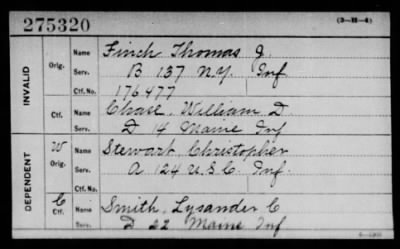 275320
(3—H—4)
INVALID
Orig.
Name Finch Thomas J.
Serv. B 137 N.Y. Inf
Ctf. No. 176477
Ctf.
Name Chase, William D
Serv. D 14 Maine Inf
DEPENDENT
W
Orig.
Name Stewart, Christopher
Serv. A 124 U.S.C. Inf.
Ctf. No.
C
Ctf.
Name Smith, Lysander C
Serv. D 22 Maine Inf